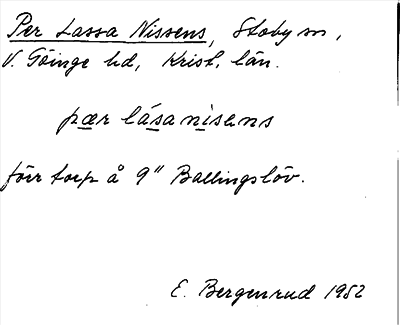 Per Lassa Nissens, Stoby sn,
V. Göinge hd, Krist. län.
pær lásanisəns
förr torp å 9" Ballingslöv.
E. Bergenrud 1952